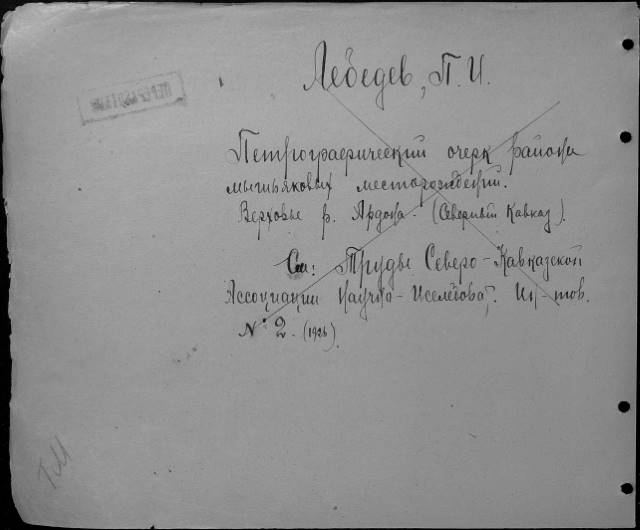 Лебедев, П. И.
Петрографический очерк района
мышьяковых месторождений.
Верховье р. Ардона. (Северный Кавказ).
См: Труды Северо-Кавказской
Ассоциации Научно-Исследова. Ин-тов.
№ 2. (1926).
ГМ